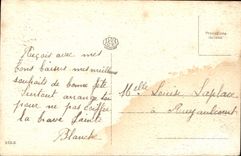 Reçois avec mes
bons baisers mes meilleurs
souhaits de bonne fête
Surtout arrange toi
pour ne pas coiffer
la brave Sainte
Blanche
Melle Louise Laplace
à